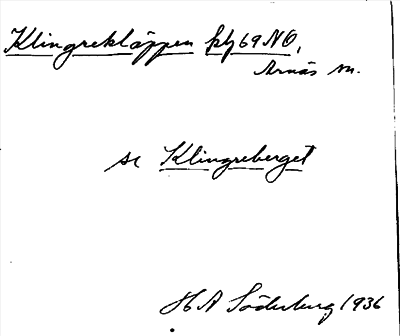 Klingrekläppen kbl 69 NO,
Arnäs sn.
se Klingreberget
H A Söderberg 1936